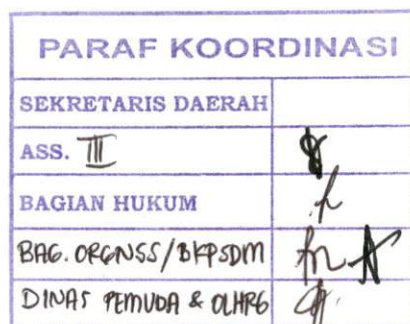 PARAF KOORDINASI
SEKRETARIS DAERAH
ASS. III
BAGIAN HUKUM
BAG. ORGNSS/BKPSDM
DINAS PEMUDA & OLHRG